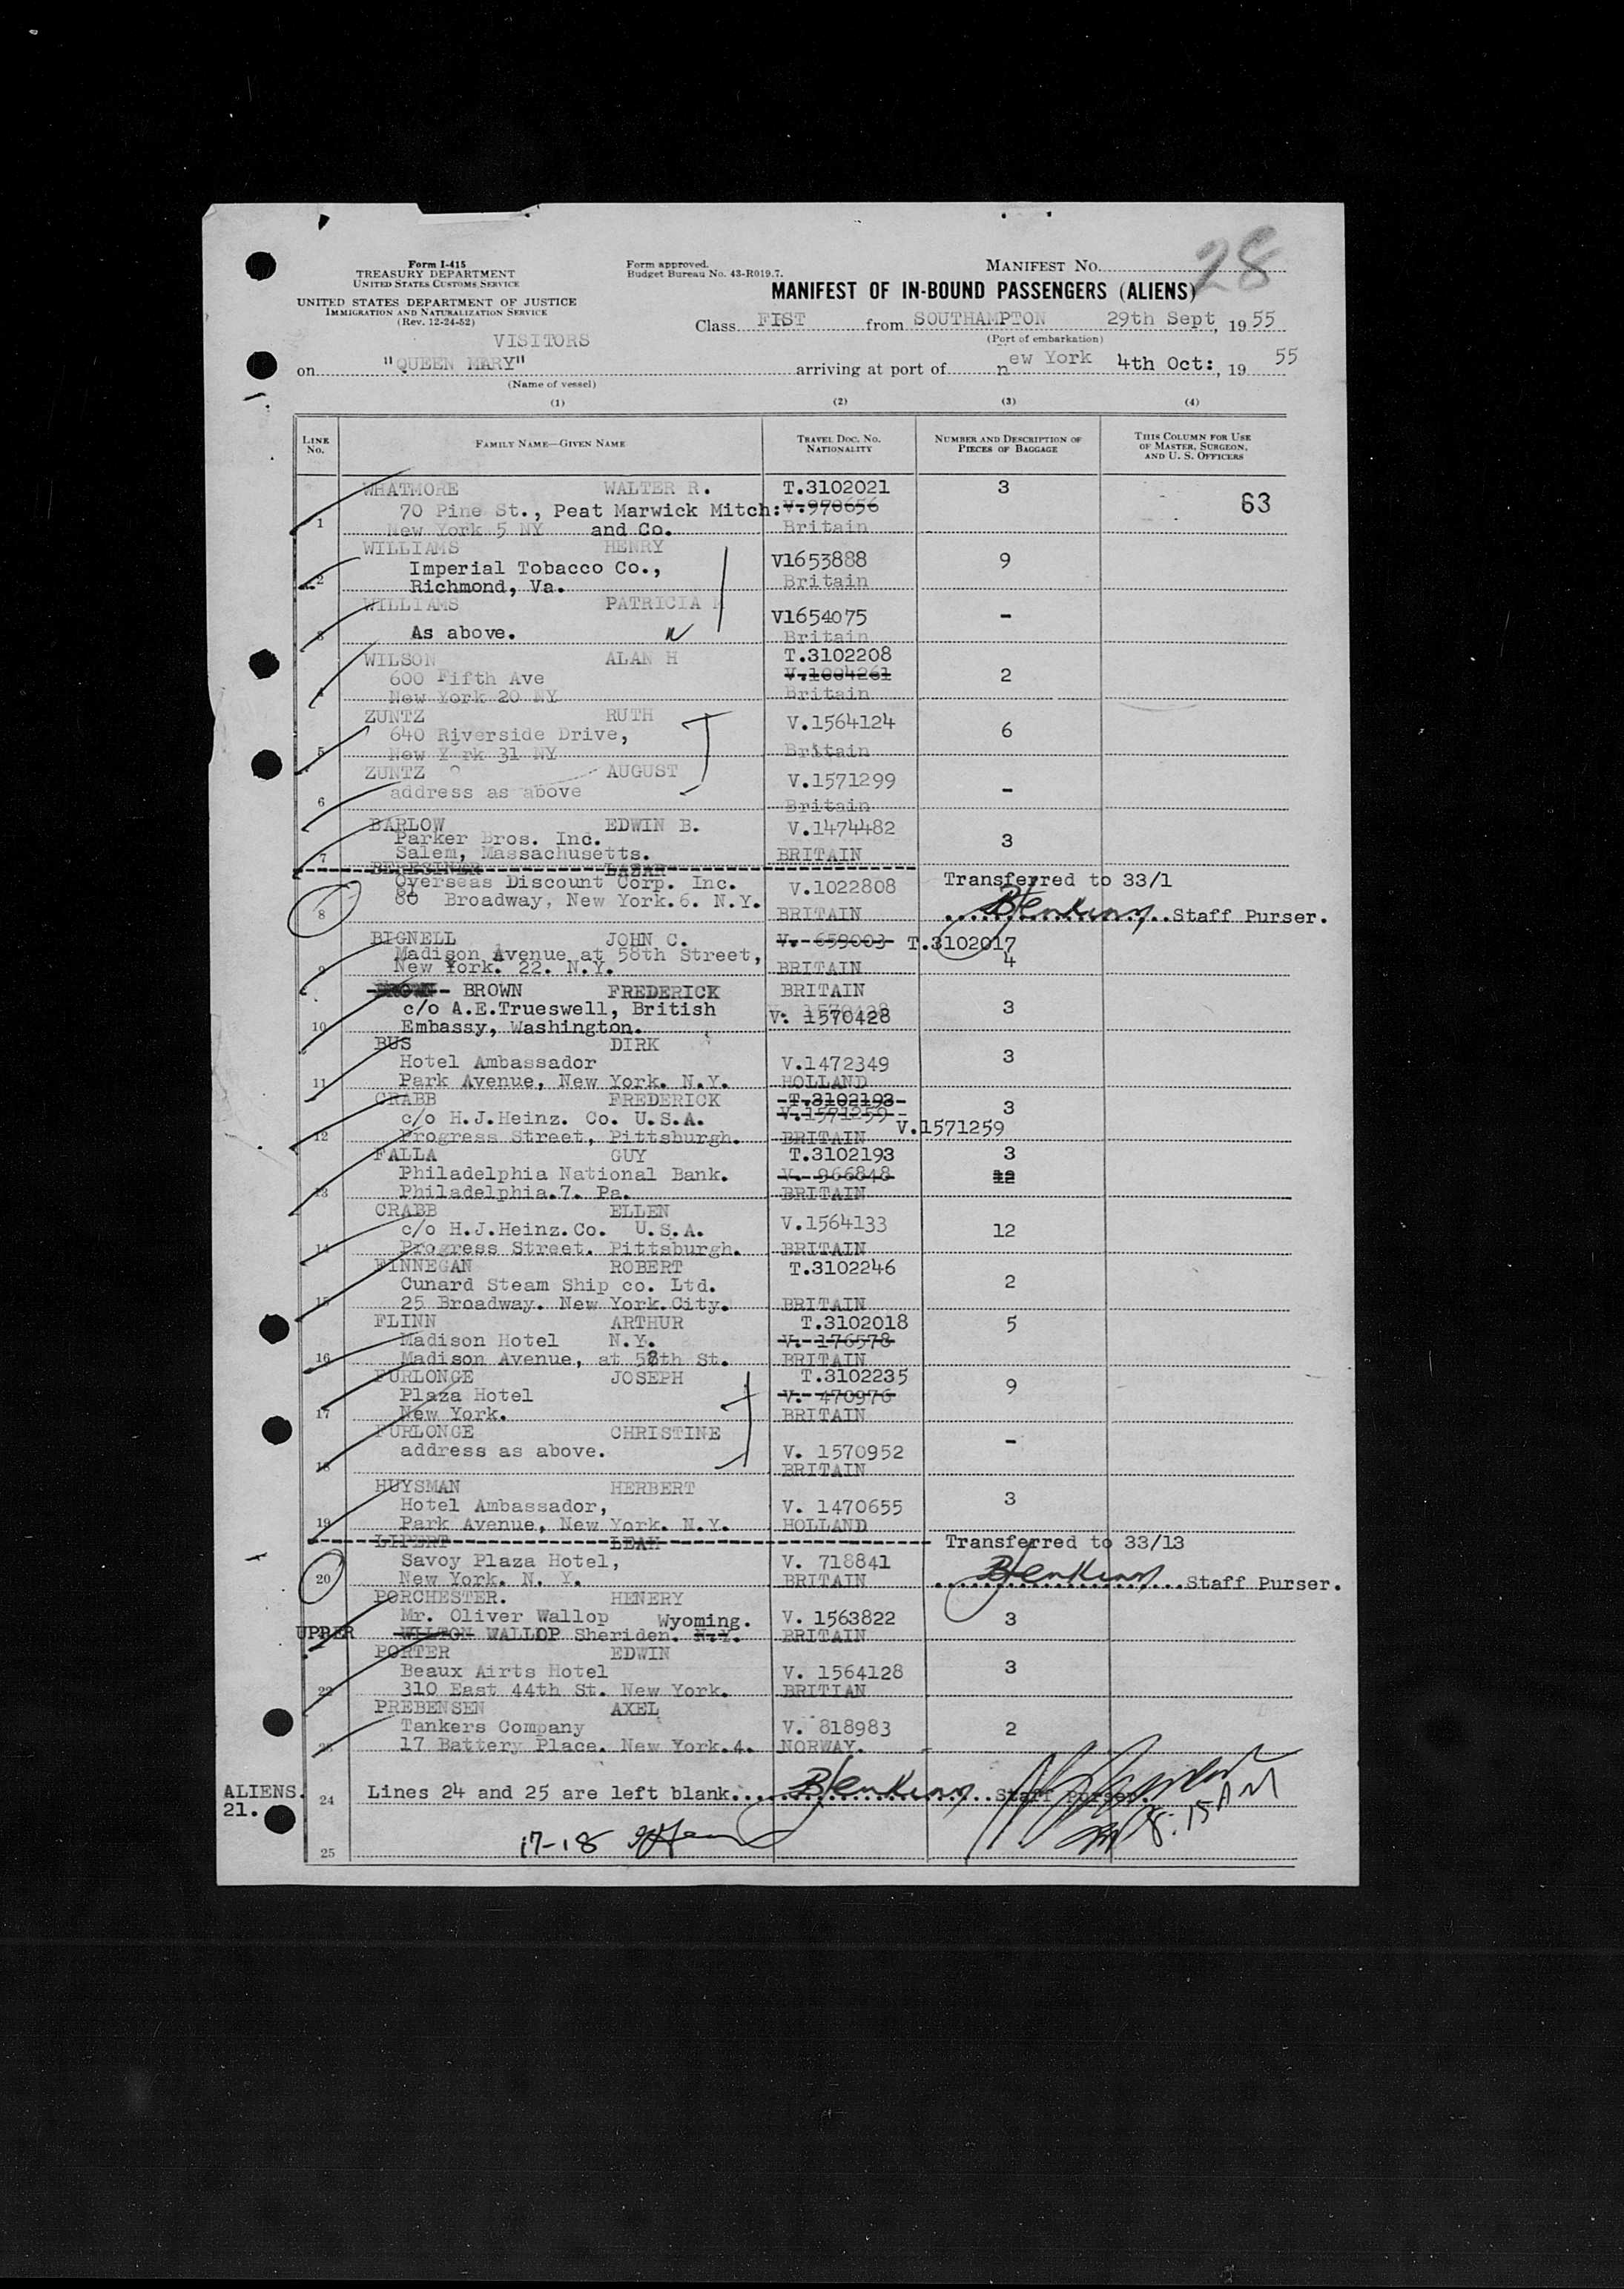 28
Form I-415
TREASURY DEPARTMENT
UNITED STATES CUSTOMS SERVICE
UNITED STATES DEPARTMENT OF JUSTICE
IMMIGRATION AND NATURALIZATION SERVICE
(Rev. 12-24-52)
Form approved.
Budget Bureau No. 43-R019.7.
MANIFEST NO.
MANIFEST OF IN-BOUND PASSENGERS (ALIENS)
Class FIST from SOUTHAMPTON 29th Sept, 1955
(Port of embarkation)
VISITORS
on "QUEEN MARY" arriving at port of new York 4th Oct:, 19 55
(Name of vessel)
(1) (2) (3) (4)
LINE No. FAMILY NAME—GIVEN NAME TRAVEL DOC. NO. NATIONALITY NUMBER AND DESCRIPTION OF PIECES OF BAGGAGE THIS COLUMN FOR USE OF MASTER, SURGEON, AND U. S. OFFICERS
WHATMORE WALTER R. T.3102021 3 63
70 Pine St., Peat Marwick Mitch: V.970656
1 New York 5 NY and Co. Britain
WILLIAMS HENRY V1653888 9
Imperial Tobacco Co.,
2 Richmond, Va. Britain
WILLIAMS PATRICIA M V1654075 -
3 As above. Britain
WILSON ALAN H T.3102208
600 Fifth Ave V.1004261 2
4 New York 20 NY Britain
ZUNTZ RUTH V.1564124 6
640 Riverside Drive,
5 New Y rk 31 NY Britain
ZUNTZ AUGUST V.1571299 -
6 address as above Britain
BARLOW EDWIN B. V.1474482 3
Parker Bros. Inc.
7 Salem, Massachusetts. BRITAIN
BERESINER LAZAR Transferred to 33/1
Overseas Discount Corp. Inc. V.1022808
8 80 Broadway, New York.6. N.Y. BRITAIN BJenkins Staff Purser.
BIGNELL JOHN C. V. 659003 T.3102017
Madison Avenue at 58th Street, 4
9 New York. 22. N.Y. BRITAIN
BROWN BROWN FREDERICK BRITAIN 3
c/o A.E.Trueswell, British V. 1570428
10 Embassy, Washington.
BUS DIRK 3
Hotel Ambassador V.1472349
11 Park Avenue, New York. N.Y. HOLLAND
CRABB FREDERICK T.3102193 3
c/o H.J.Heinz. Co. U.S.A. V.1571259 V.1571259
12 Progress Street, Pittsburgh. BRITAIN
FALLA GUY T.3102193 3
Philadelphia National Bank. V. 966848 12
13 Philadelphia.7. Pa. BRITAIN
CRABB ELLEN V.1564133 12
c/o H.J.Heinz.Co. U.S.A.
14 Progress Street. Pittsburgh. BRITAIN
FINNEGAN ROBERT T.3102246
Cunard Steam Ship co. Ltd. 2
15 25 Broadway. New York.City. BRITAIN
FLINN ARTHUR T.3102018 5
Madison Hotel N.Y. V. 176578
16 Madison Avenue, at 58th St. BRITAIN
FURLONGE JOSEPH T.3102235 9
Plaza Hotel V. 470976
17 New York. BRITAIN
FURLONGE CHRISTINE -
address as above. V. 1570952
18 BRITAIN
HUYSMAN HERBERT 3
Hotel Ambassador, V. 1470655
19 Park Avenue, New York. N.Y. HOLLAND
LIPERT LEAH Transferred to 33/13
Savoy Plaza Hotel, V. 718841
20 New York. N. Y. BRITAIN BJenkins Staff Purser.
PORCHESTER. HENERY
Mr. Oliver Wallop Wyoming. V. 1563822 3
UPPER WILTON WALLOP Sheriden. N.Y. BRITAIN
PORTER EDWIN 3
Beaux Airts Hotel V. 1564128
22 310 East 44th St. New York. BRITIAN
PREBENSEN AXEL
Tankers Company V. 818983 2
23 17 Battery Place. New York.4. NORWAY.
ALIENS.
21.
24 Lines 24 and 25 are left blank BJenkins Staff Purser.
8:15 AM
25 17-18